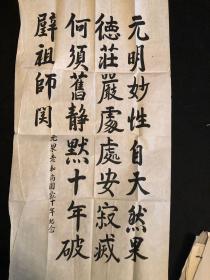 元明妙性自天然果
德莊嚴處處安寂滅
何須舊静默十年破
壁祖師関
元果老和尚圓寂十年纪念